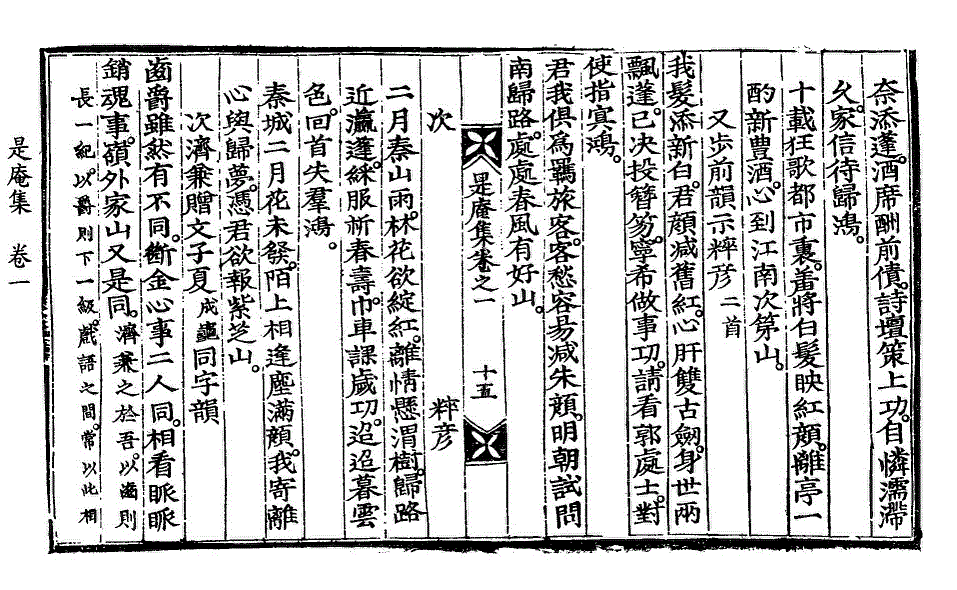 奈添蓬。酒席酬前債。詩壇策上功。自憐濡滯
久。家信待歸鴻。
十載狂歌都市裏。羞將白髮映紅顏。離亭一
酌新豊酒。心到江南次第山。
又步前韻示粹彦 二首
我髮添新白。君顏減舊紅。心肝雙古劒。身世兩
飄蓬。已决投簪笏。寧希做事功。請看郭處士。對
使指冥鴻。
君我俱爲羈旅客。客愁容易减朱顏。明朝試問
南歸路。處處春風有好山。
是庵集卷之一 十五
次 粹彦
二月秦山雨。林花欲綻紅。離情懸渭樹。歸路
近瀛蓬。綵服祈春壽。巾車課歲功。迢迢暮雲
色。回首失羣鴻。
秦城二月花未發。陌上相逢塵滿顏。我寄離
心與歸夢。憑君欲報紫芝山。
次濟兼贈文子夏 成龜 同字韻
齒爵雖然有不同。斷金心事二人同。相看脈脈
銷魂事。嶺外家山又是同。濟兼之於吾。以齒則
長一紀。以爵則下一級。戲語之間。常以此相
是庵集 卷一